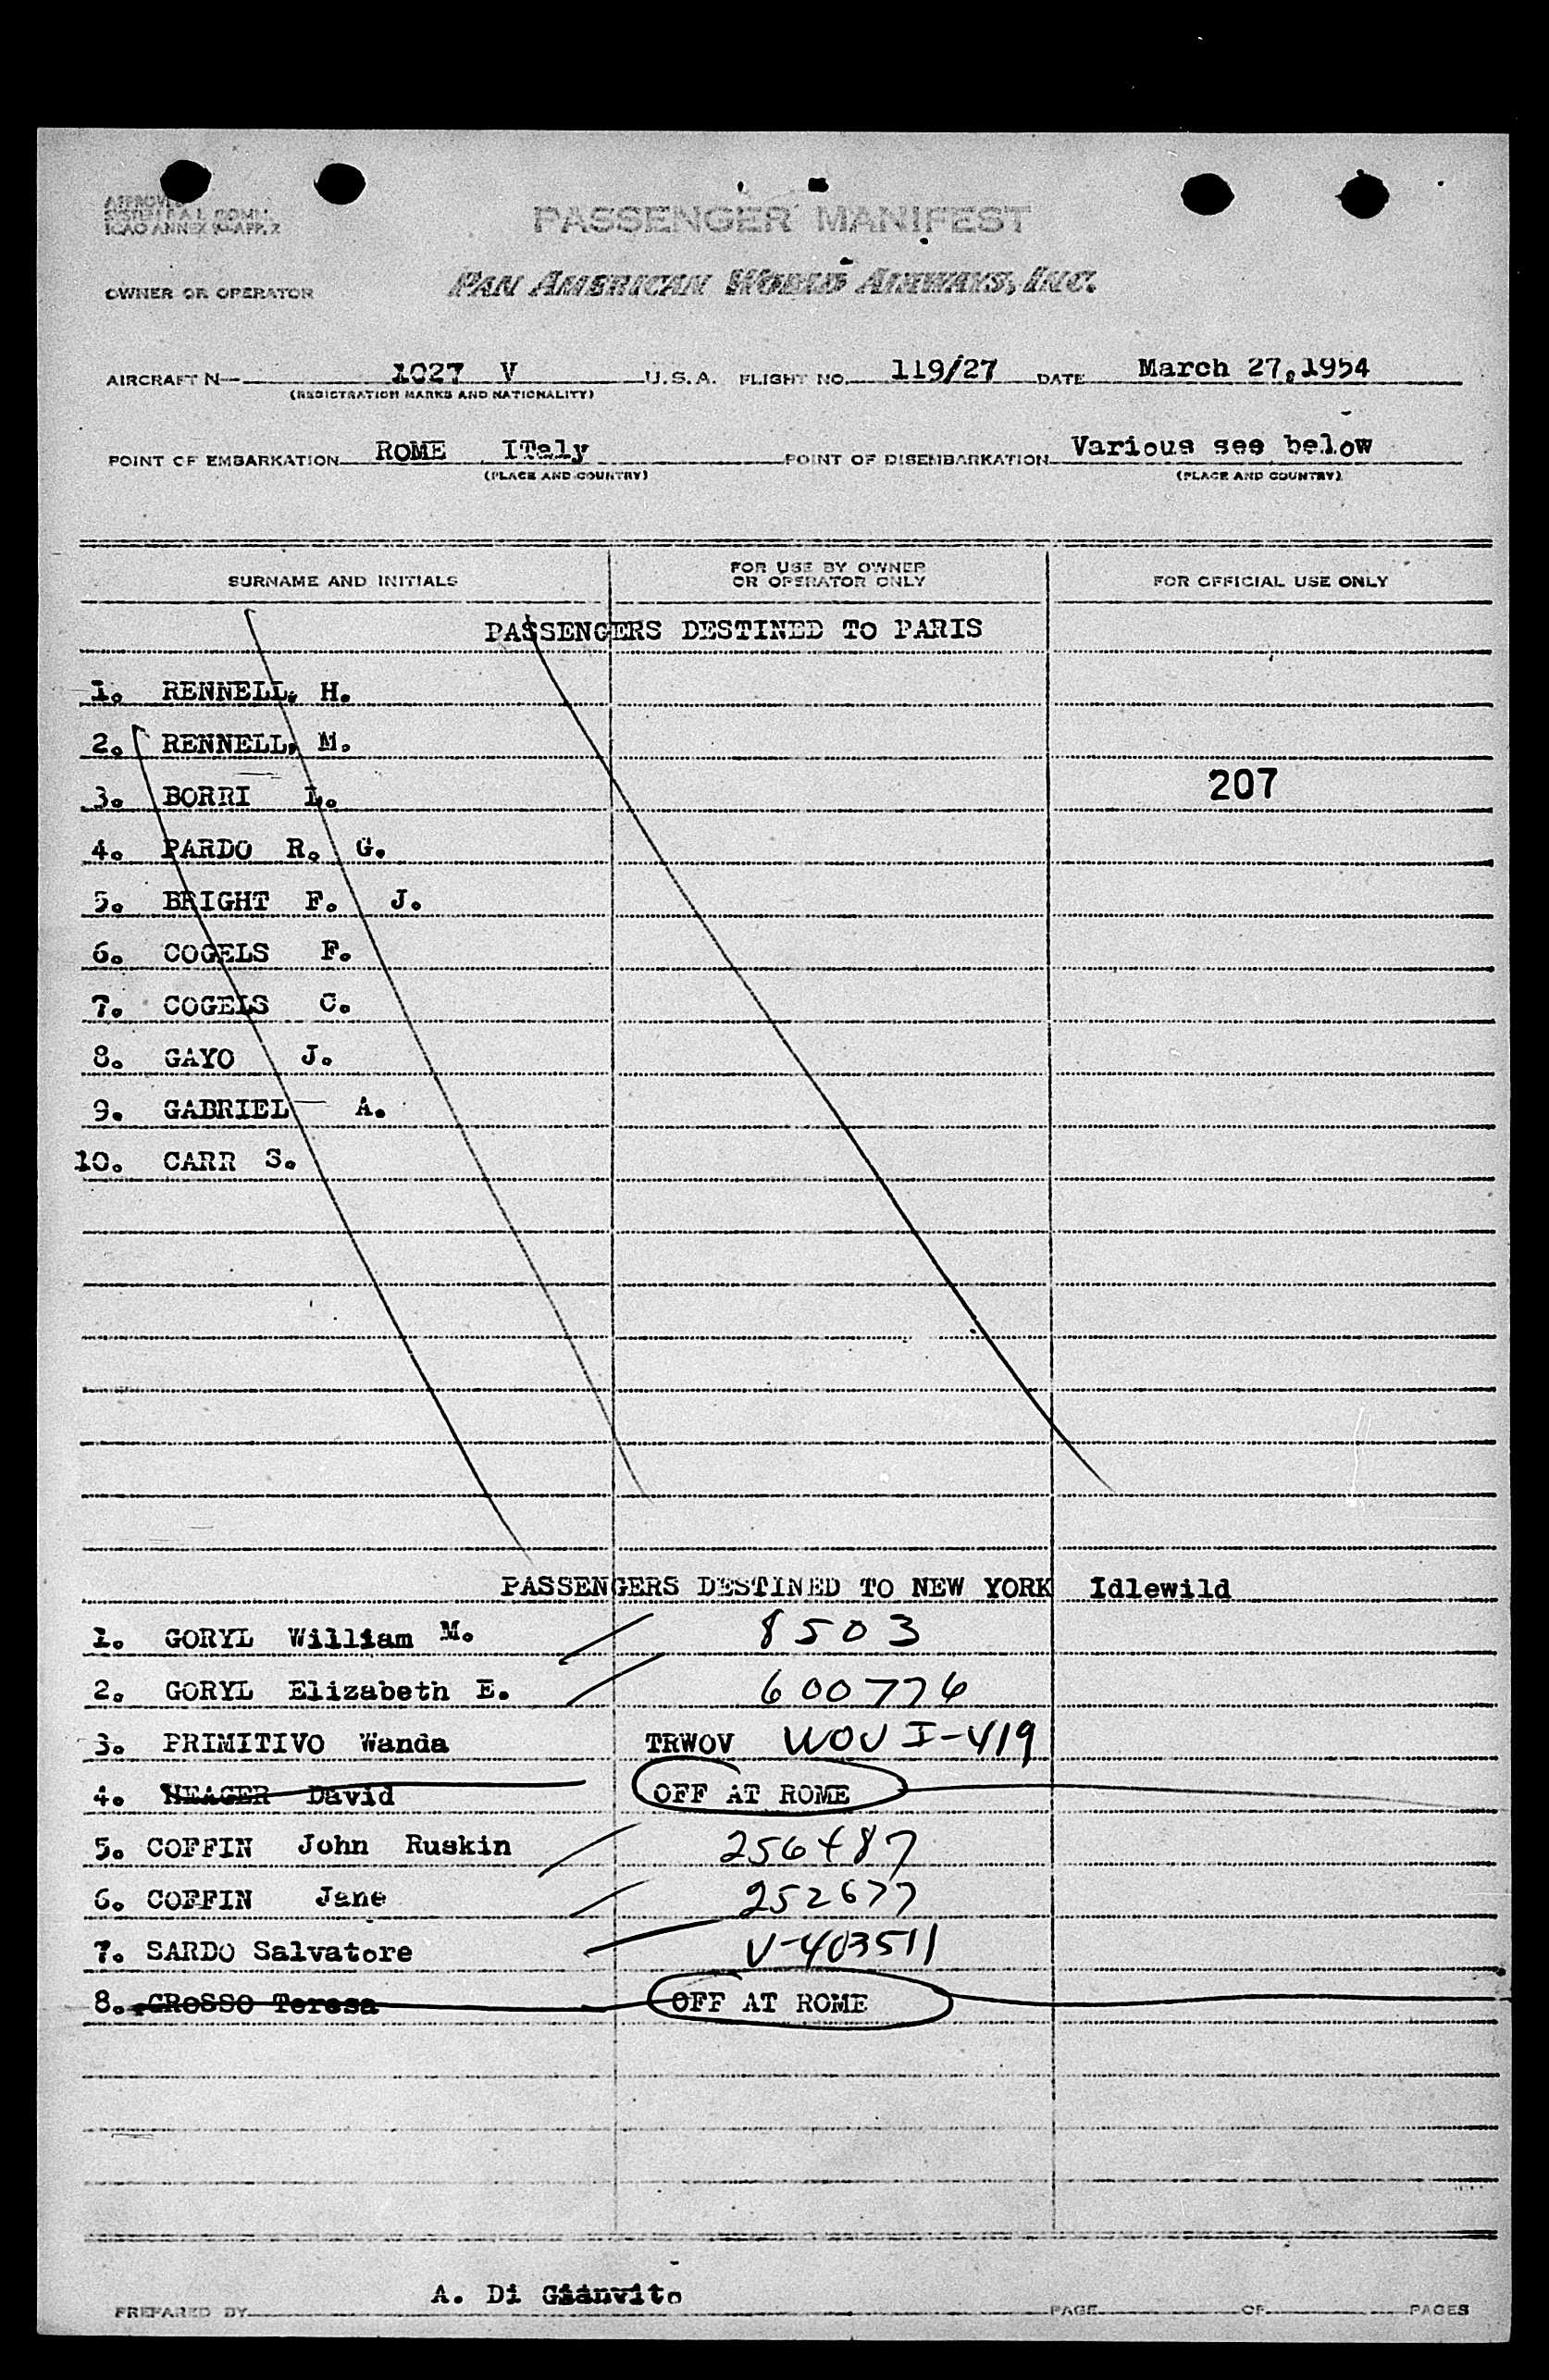 APPROVED
SYSTEM P.A.I. COMM.
ICAO ANNEX 9-APP. 2
PASSENGER MANIFEST
OWNER OR OPERATOR PAN AMERICAN WORLD AIRWAYS, INC.
AIRCRAFT N— 1027 V U.S.A. FLIGHT NO. 119/27 DATE March 27,1954
(REGISTRATION MARKS AND NATIONALITY)
POINT OF EMBARKATION ROME ITaly POINT OF DISEMBARKATION Various see below
(PLACE AND COUNTRY) (PLACE AND COUNTRY)
SURNAME AND INITIALS FOR USE BY OWNER OR OPERATOR ONLY FOR OFFICIAL USE ONLY
PASSENGERS DESTINED TO PARIS
1. RENNELL, H.
2. RENNELL, M.
3. BORRI L. 207
4. PARDO R. G.
5. BRIGHT F. J.
6. COGELS F.
7. COGELS C.
8. GAYO J.
9. GABRIEL A.
10. CARR S.
PASSENGERS DESTINED TO NEW YORK Idlewild
1. GORYL William M. 8503
2. GORYL Elizabeth E. 600776
3. PRIMITIVO Wanda TRWOV WOV I-419
4. David OFF AT ROME
5. COFFIN John Ruskin 256487
6. COFFIN Jane 252677
7. SARDO Salvatore V-403511
8. GROSSO Teresa OFF AT ROME
A. Di Gianvito
PREPARED BY PAGE OF PAGES